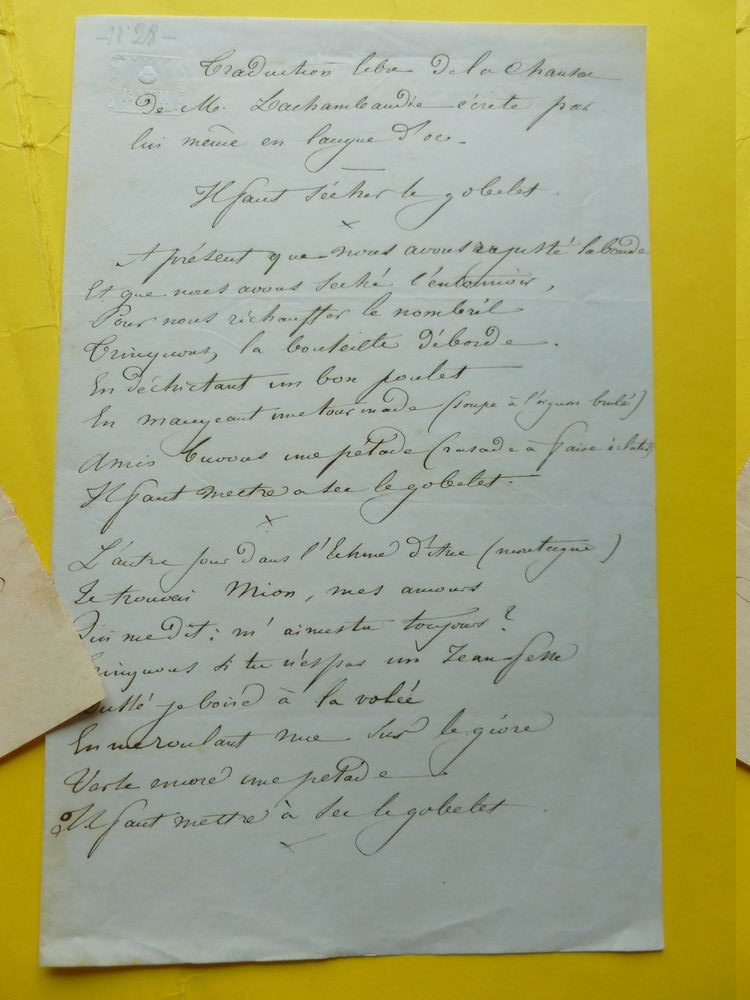 N° 28
Traduction libre de la chanson
De M. Lachambaudie écrite par
lui même en langue d'oc.
Il faut sécher le gobelet.
A présent que nous avons la bonde
Et que nous avons séché l'entonnoir,
Pour nous réchauffer le nombril
Trinquons, la bouteille déborde.
En déchictant un bon poulet
En mangeant une tourinade (soupe à l'oignon brulé)
Amis buvons une pétade (rasade à faire éclater)
Il faut mettre a sec le gobelet.
L'autre jour dans l' (montagne)
Je trouvai Mion, mes amours
Qui me dit: m'aimes tu toujours?
Trinquons si tu n'es pas un Jean-fesse
je boirs à la volée
En me roulant nue sur le givre
Verse encore une petade
Il faut mettre à sec le gobelet.